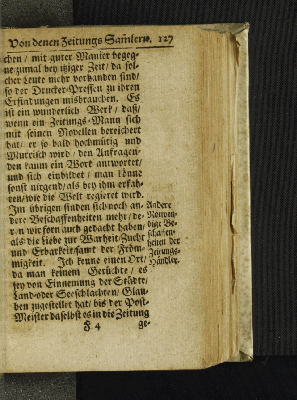 Von denen Zeitungs Sam̃lern. 127
chen / mit guter Manier begeg-
ne zumal bey itziger Zeit / da sol-
cher Leute mehr vorhanden sind /
so der Drucker-Pressen zu ihren
Erfindungen misbrauchen. Es
ist ein wunderlich Werk / daß /
wenn ein Zeitungs-Mann sich
mit seinen Novellen bereichert
hat / er so bald hochmütig und
Murrisch wird / den Anfragen-
den kaum ein Wort antwortet /
und sich einbildet / man könne
sonst nirgend / als bey ihm erfah-
ren / wie die Welt regieret wird.
Im übrigen finden sich noch an-
dere Beschaffenheiten mehr / de-
ren wir forn auch gedacht haben /
als: die Liebe zur Warheit / Zucht
und Erbarkeit samt der Fröm-
migkeit. Ich kenne einen Ort /
da man keinem Gerüchte / es
sey von Einnemung der Städte /
Land-oder Seeschlachten / Glau-
ben zugestellet hat / bis der Post-
Meister daselbst es in die Zeitung
F 4 ge-
Andere
Notwen-
dige Be-
schaffen-
heiten der
Zeitungs-
Händler.